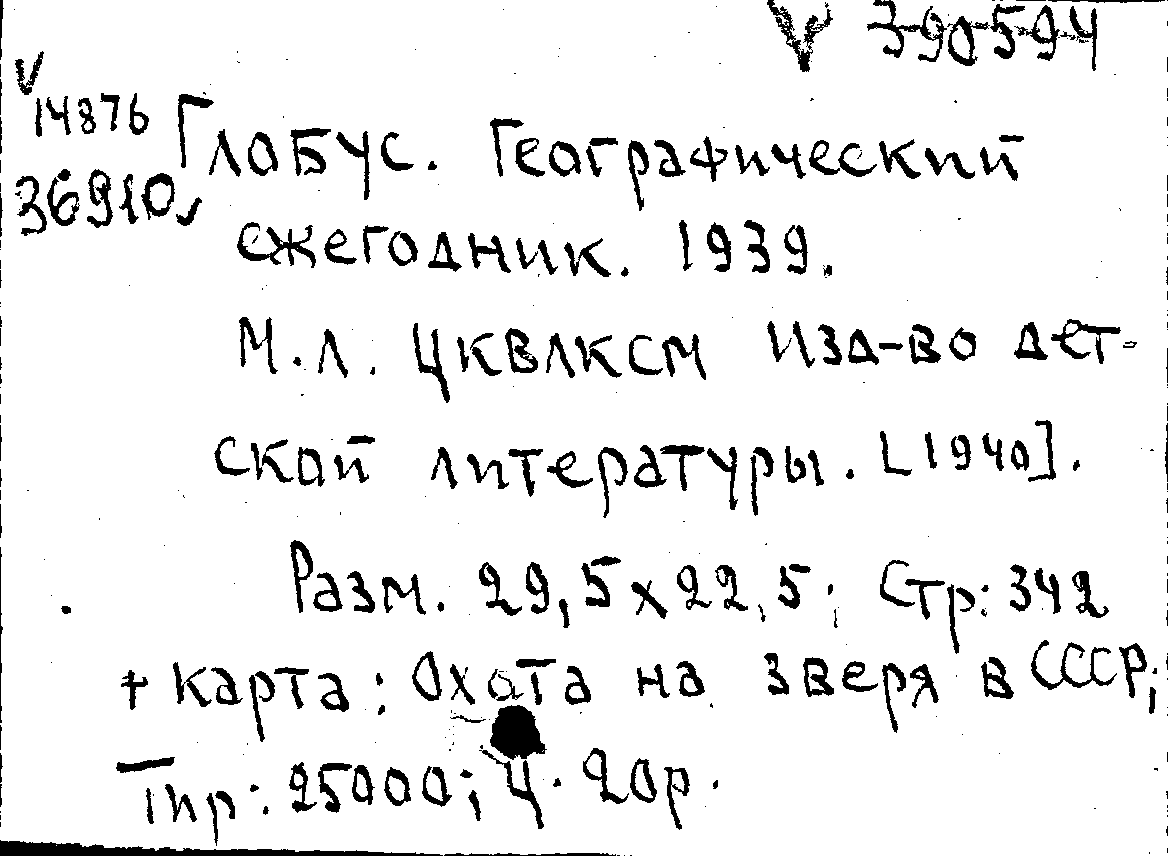 V 390594
V
14876
36910 v
Глобус. Географический
ежегодник. 1939.
М.Л. ЦКВЛКСМ Изд-во дет-
ской литературы. [1940].
Разм. 29,5x22,5; Стр: 342
+ карта: Охота на зверя в СССР;
Тир: 25000; Ц. 20р.